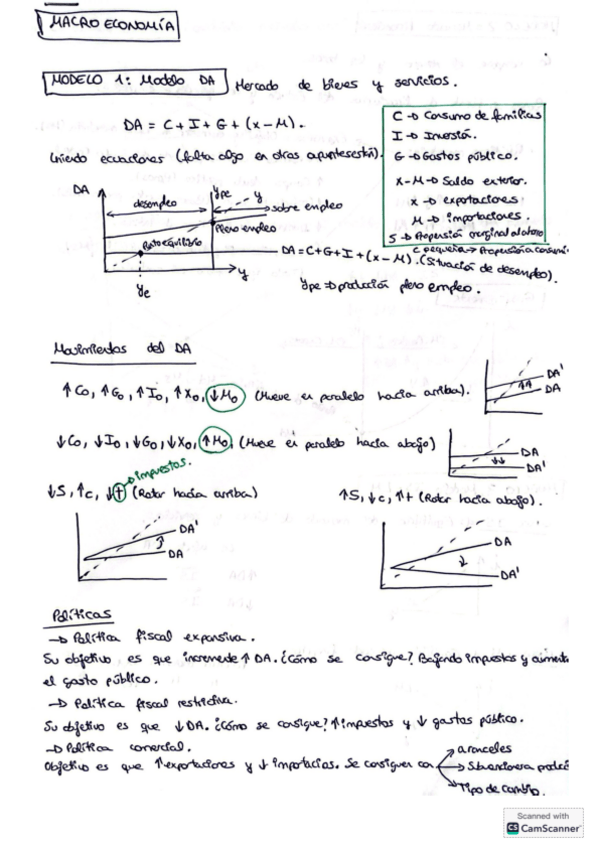 MACROECONOMÍA
MODELO 1: Modelo DA Mercado de bienes y servicios.
DA = C + I + G + (x - M).
C → Consumo de familias
I → Inversión.
G → Gastos público.
X-M → Saldo exterior.
x → exportaciones
M → importaciones.
S → Propensión al ahorro
c pequeña → Propensión a
ecuaciones (falta algo en otras apuntes están).
DA
desempleo
Ype
y
sobre empleo
Pleno empleo
Punto equilibrio
DA = C+G+I+(x-M). (Situación de desempleo).
Ye
y
Ype ⇒ producción pleno empleo.
Movimientos del DA
↑Co, ↑Go, ↑Io, ↑Xo, ↓Mo (Mueve en paralelo hacia arriba).
DA'
DA
↓Co, ↓Io, ↓Go, ↓Xo, ↑Mo, (Mueve en paralelo hacia abajo)
DA
DA'
impuestos.
↓S, ↑c, ↓t (Rotar hacia arriba)
↑S, ↓c, ↑t (Rotar hacia abajo).
DA'
DA
DA
DA'
Políticas
→ Política fiscal expansiva.
Su objetivo es que incremente ↑ DA. ¿Cómo se consigue? Bajando impuestos y
el gasto público.
→ Política fiscal restrictiva.
Su objetivo es que ↓DA. ¿Cómo se consigue? ↑impuestos y ↓ gastos público.
→ Política comercial.
Objetivo es que ↑exportaciones y ↓ Se consiguen con
aranceles
Tipo de cambio.
Scanned with
CS CamScanner